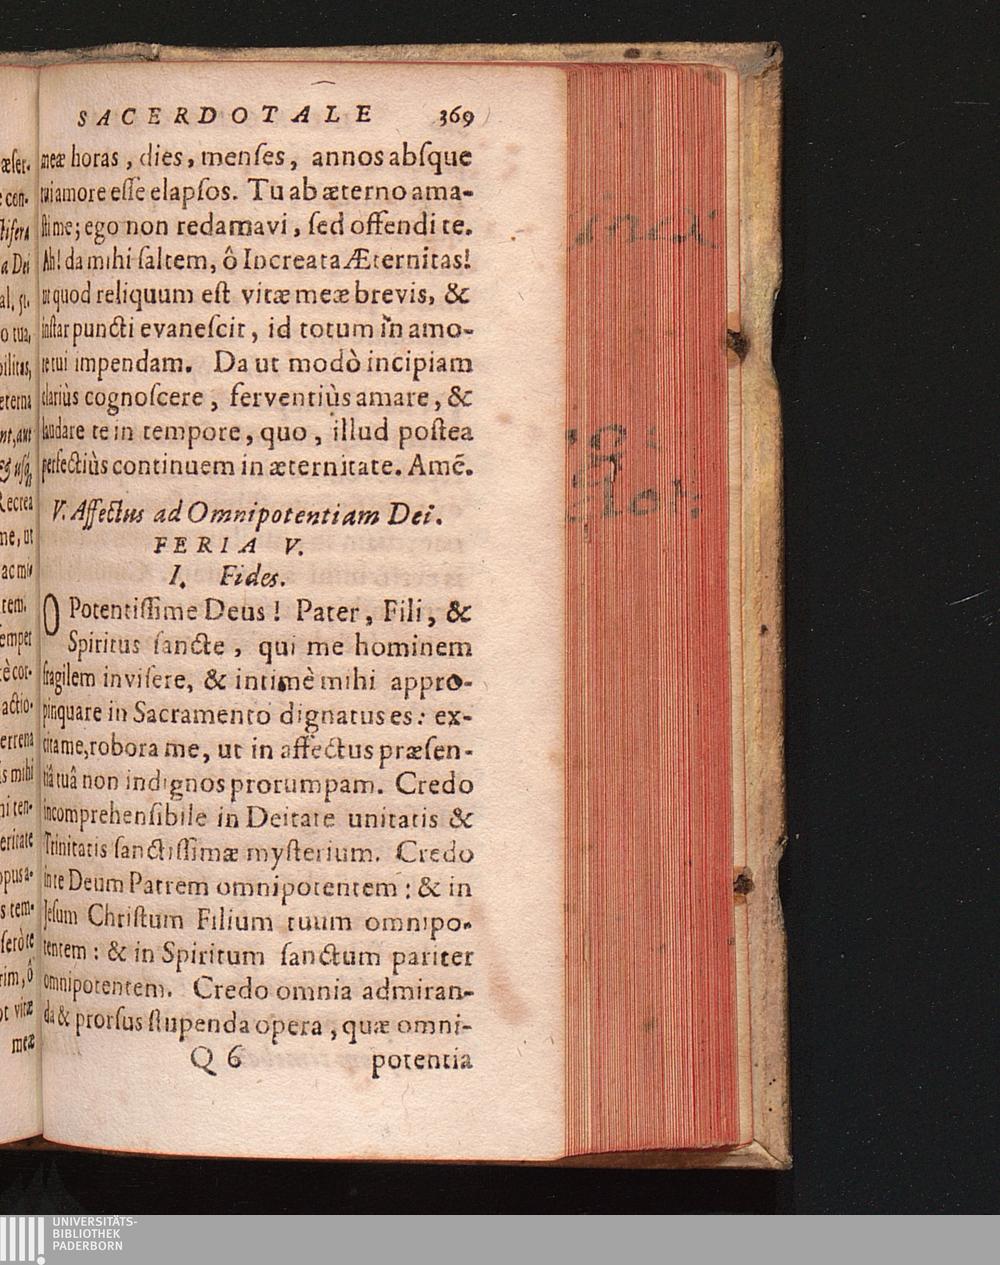 SACERDOTALE 369
meæ horas, dies, menſes, annos abſque
tui amore eſſe elapſos. Tu ab æterno ama-
ſti me; ego non redamavi, ſed offendi te.
Ah! da mihi ſaltem, ô Increata Æternitas!
ut quod reliquum eſt vitæ meæ brevis, &
inſtar puncti evaneſcit, id totum in amo-
re tui impendam. Da ut modò incipiam
clariùs cognoſcere, ferventiùs amare, &
laudare te in tempore, quo, illud poſtea
perfectiùs continuem in æternitate. Amẽ.
V. Affectus ad Omnipotentiam Dei.
FERIA V.
I. Fides.
O Potentiſſime Deus! Pater, Fili, &
Spiritus ſancte, qui me hominem
fragilem inviſere, & intimè mihi appro-
pinquare in Sacramento dignatus es: ex-
cita me, robora me, ut in affectus præſen-
tiâ tuâ non indignos prorumpam. Credo
incomprehenſibile in Deitate unitatis &
Trinitatis ſanctiſſimæ myſterium. Credo
in te Deum Patrem omnipotentem: & in
Jeſum Chriſtum Filium tuum omnipo-
tentem: & in Spiritum ſanctum pariter
omnipotentem. Credo omnia admiran-
da & prorſus ſtupenda opera, quæ omni-
Q 6 potentia
UNIVERSITÄTS-
BIBLIOTHEK
PADERBORN